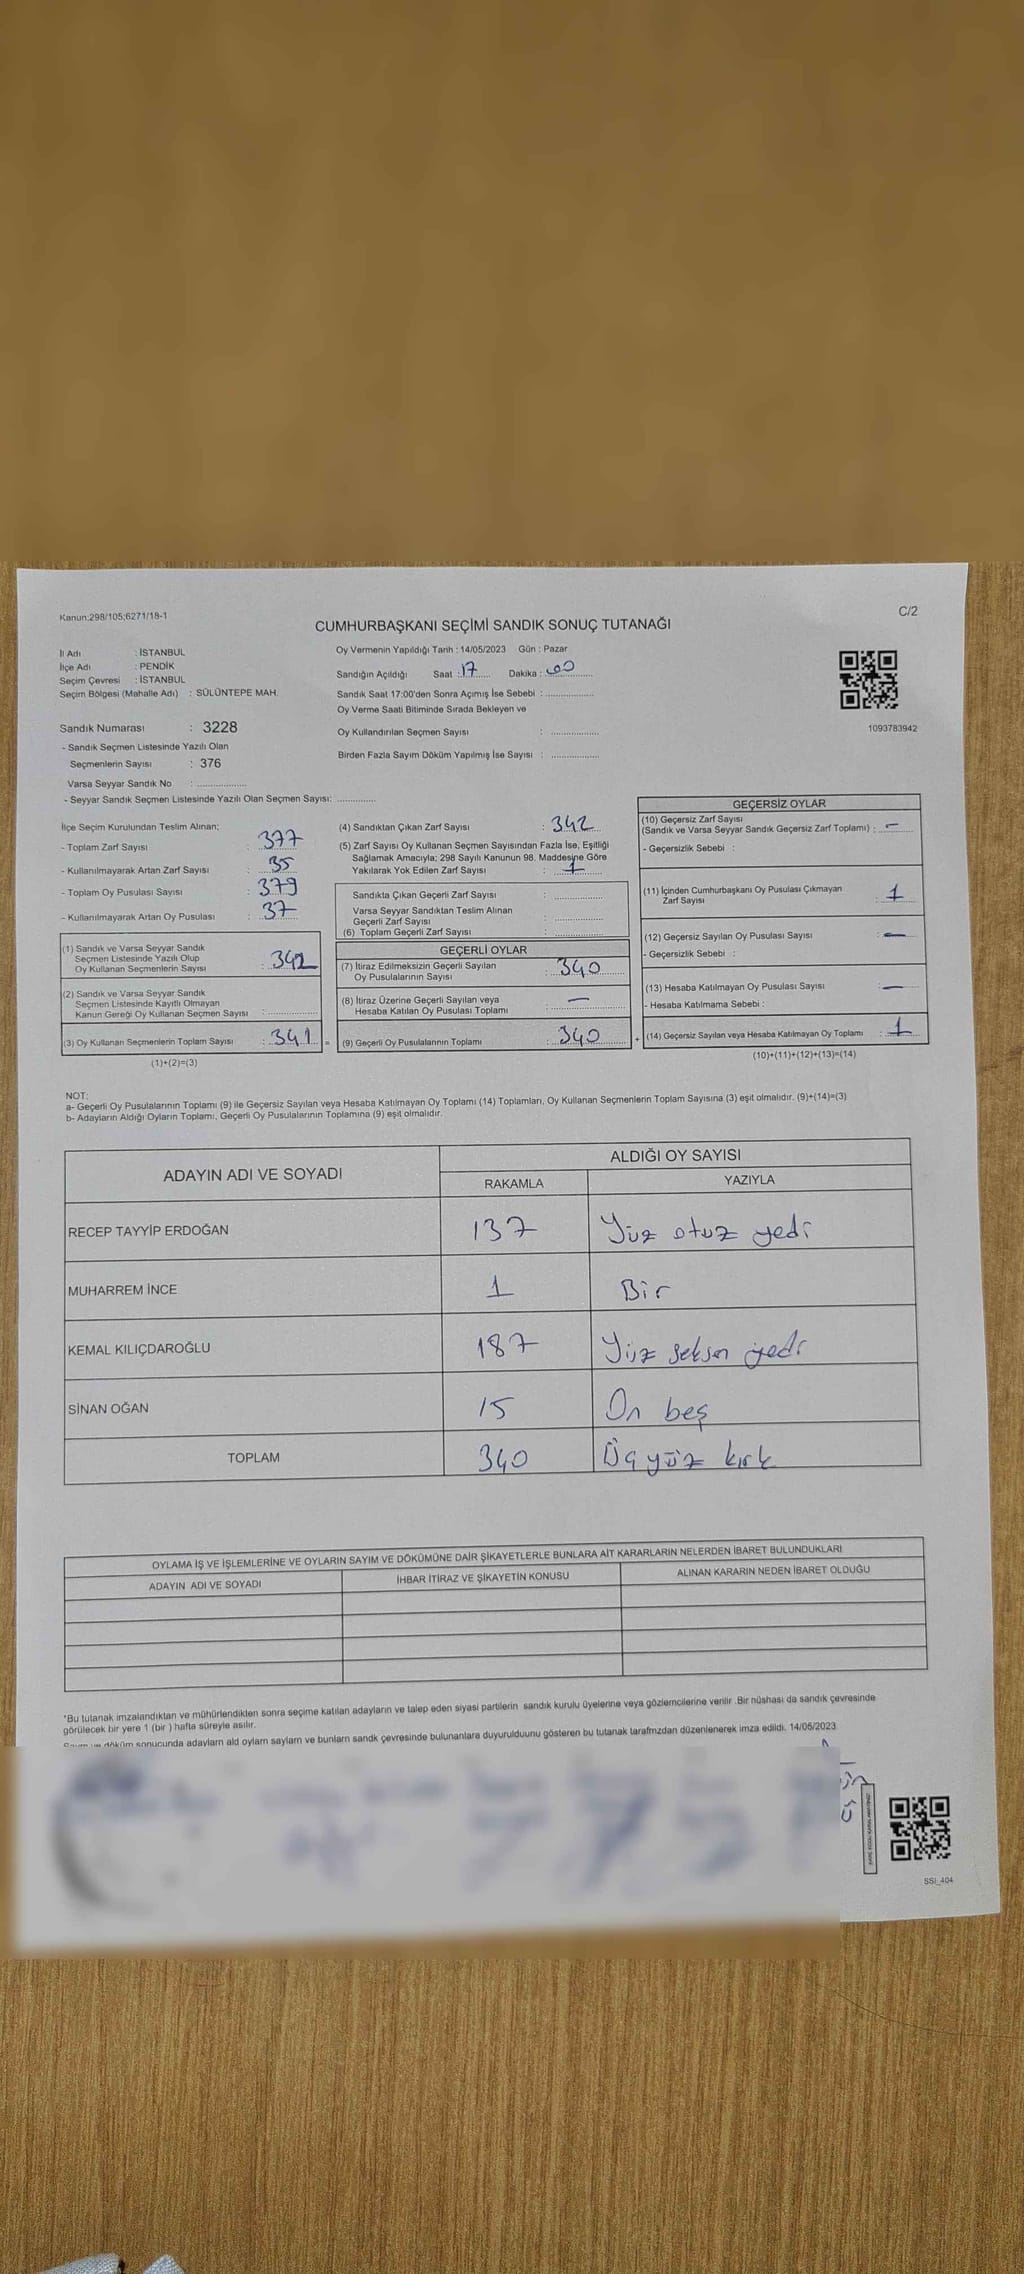 Kanun:298/105;6271/18-1
C/2
CUMHURBAŞKANI SEÇİMİ SANDIK SONUÇ TUTANAĞI
İl Adı : İSTANBUL
İlçe Adı : PENDİK
Seçim Çevresi : İSTANBUL
Seçim Bölgesi (Mahalle Adı) : SÜLÜNTEPE MAH.
Oy Vermenin Yapıldığı Tarih : 14/05/2023 Gün : Pazar
Sandığın Açıldığı Saat : 17 Dakika : 00
Sandık Saat 17:00'den Sonra Açımış İse Sebebi :
Oy Verme Saati Bitiminde Sırada Bekleyen ve
Oy Kullandırılan Seçmen Sayısı :
Birden Fazla Sayım Döküm Yapılmış İse Sayısı :
1093783942
Sandık Numarası : 3228
- Sandık Seçmen Listesinde Yazılı Olan
Seçmenlerin Sayısı : 376
Varsa Seyyar Sandık No :
- Seyyar Sandık Seçmen Listesinde Yazılı Olan Seçmen Sayısı:
İlçe Seçim Kurulundan Teslim Alınan;
- Toplam Zarf Sayısı : 377
- Kullanılmayarak Artan Zarf Sayısı : 35
- Toplam Oy Pusulası Sayısı : 379
- Kullanılmayarak Artan Oy Pusulası : 37
(1) Sandık ve Varsa Seyyar Sandık
Seçmen Listesinde Yazılı Olup
Oy Kullanan Seçmenlerin Sayısı : 342
(2) Sandık ve Varsa Seyyar Sandık
Seçmen Listesinde Kayıtlı Olmayan
Kanun Gereği Oy Kullanan Seçmen Sayısı :
(3) Oy Kullanan Seçmenlerin Toplam Sayısı : 341 =
(1)+(2)=(3)
(4) Sandıktan Çıkan Zarf Sayısı : 342
(5) Zarf Sayısı Oy Kullanan Seçmen Sayısından Fazla İse, Eşitliği
Sağlamak Amacıyla; 298 Sayılı Kanunun 98. Maddesine Göre
Yakılarak Yok Edilen Zarf Sayısı : 1
Sandıkta Çıkan Geçerli Zarf Sayısı :
Varsa Seyyar Sandıktan Teslim Alınan
Geçerli Zarf Sayısı :
(6) Toplam Geçerli Zarf Sayısı :
GEÇERLİ OYLAR
(7) İtiraz Edilmeksizin Geçerli Sayılan
Oy Pusulalarının Sayısı : 340
(8) İtiraz Üzerine Geçerli Sayılan veya
Hesaba Katılan Oy Pusulası Toplamı : —
(9) Geçerli Oy Pusulalarının Toplamı : 340 +
GEÇERSİZ OYLAR
(10) Geçersiz Zarf Sayısı
(Sandık ve Varsa Seyyar Sandık Geçersiz Zarf Toplamı) : —
- Geçersizlik Sebebi :
(11) İçinden Cumhurbaşkanı Oy Pusulası Çıkmayan
Zarf Sayısı : 1
(12) Geçersiz Sayılan Oy Pusulası Sayısı : —
- Geçersizlik Sebebi :
(13) Hesaba Katılmayan Oy Pusulası Sayısı : —
- Hesaba Katılmama Sebebi :
(14) Geçersiz Sayılan veya Hesaba Katılmayan Oy Toplamı : 1
(10)+(11)+(12)+(13)=(14)
NOT:
a- Geçerli Oy Pusulalarının Toplamı (9) ile Geçersiz Sayılan veya Hesaba Katılmayan Oy Toplamı (14) Toplamları, Oy Kullanan Seçmenlerin Toplam Sayısına (3) eşit olmalıdır. (9)+(14)=(3)
b- Adayların Aldığı Oyların Toplamı, Geçerli Oy Pusulalarının Toplamına (9) eşit olmalıdır.
ADAYIN ADI VE SOYADI
ALDIĞI OY SAYISI
RAKAMLA YAZIYLA
RECEP TAYYİP ERDOĞAN 137 Yüz otuz yedi
MUHARREM İNCE 1 Bir
KEMAL KILIÇDAROĞLU 187 Yüz seksen yedi
SİNAN OĞAN 15 On beş
TOPLAM 340 Üçyüz kırk
OYLAMA İŞ VE İŞLEMLERİNE VE OYLARIN SAYIM VE DÖKÜMÜNE DAİR ŞİKAYETLERLE BUNLARA AİT KARARLARIN NELERDEN İBARET BULUNDUKLARI
ADAYIN ADI VE SOYADI İHBAR İTİRAZ VE ŞİKAYETİN KONUSU ALINAN KARARIN NEDEN İBARET OLDUĞU
*Bu tutanak imzalandıktan ve mühürlendikten sonra seçime katılan adayların ve talep eden siyasi partilerin sandık kurulu üyelerine veya gözlemcilerine verilir .Bir nüshası da sandık çevresinde
görülecek bir yere 1 (bir ) hafta süreyle asılır.
döküm sonucunda adayların ald oyların sayların ve bunların sandk çevresinde bulunanlara duyurulduunu gösteren bu tutanak tarafmzdan düzenlenerek imza edildi. 14/05/2023
SSI_404